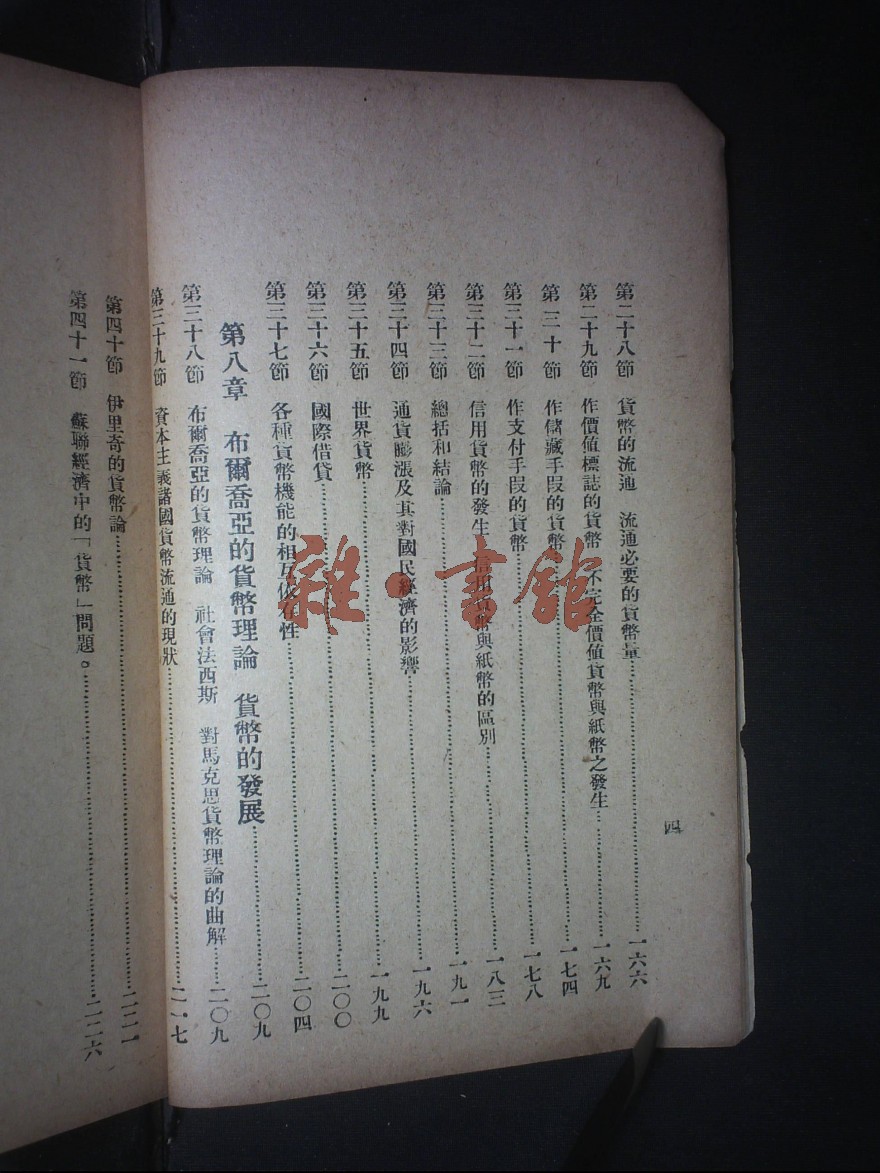 四
第二十八節　貨幣的流通　流通必要的貨幣量……一六六
第二十九節　作價値標誌的貨幣　不完全價値貨幣與紙幣之發生……一六九
第三十節　作儲藏手段的貨幣……一七四
第三十一節　作支付手段的貨幣……一七八
第三十二節　信用貨幣的發生　信用貨幣與紙幣的區別……一八三
第三十三節　總括和結論……一九一
第三十四節　通貨膨漲及其對國民經濟的影響……一九六
第三十五節　世界貨幣……一九九
第三十六節　國際借貸……二〇〇
第三十七節　各種貨幣機能的相互依存性……二〇四
第八章　布爾喬亞的貨幣理論　貨幣的發展……二〇九
第三十八節　布爾喬亞的貨幣理論　社會法西斯　對馬克思貨幣理論的曲解……二〇九
第三十九節　資本主義諸國貨幣流通的現狀……二一七
第四十節　伊里奇的貨幣論……二二一
第四十一節　蘇聯經濟中的「貨幣」問題。……二二六
雜·書館